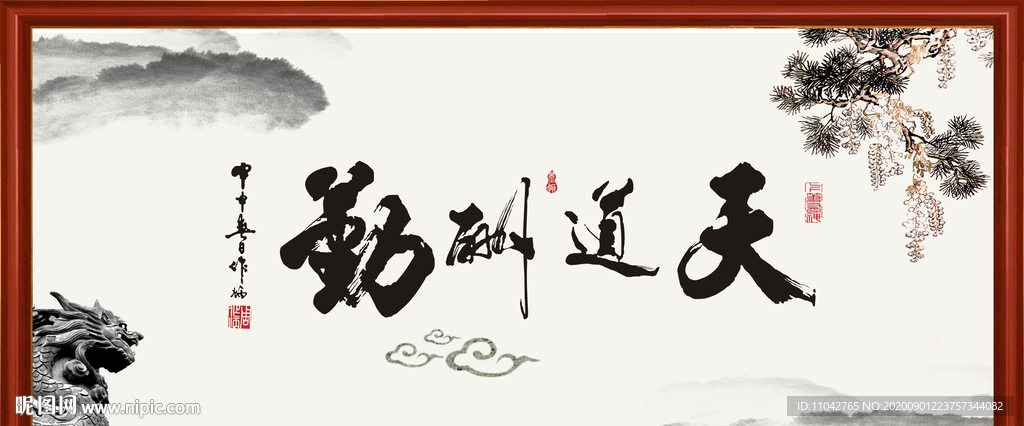 天道酬勤
昵图网 www.nipic.com
ID:11042765 NO:20200901223757344082